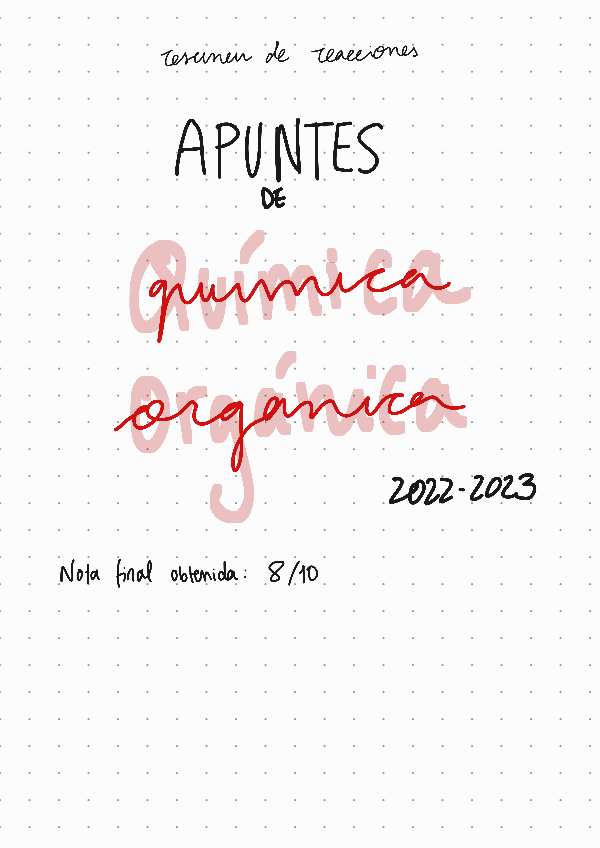 resumen de reacciones
APUNTES
DE
Química
química
orgánica
orgánica
2022-2023
Nota final obtenida: 8/10